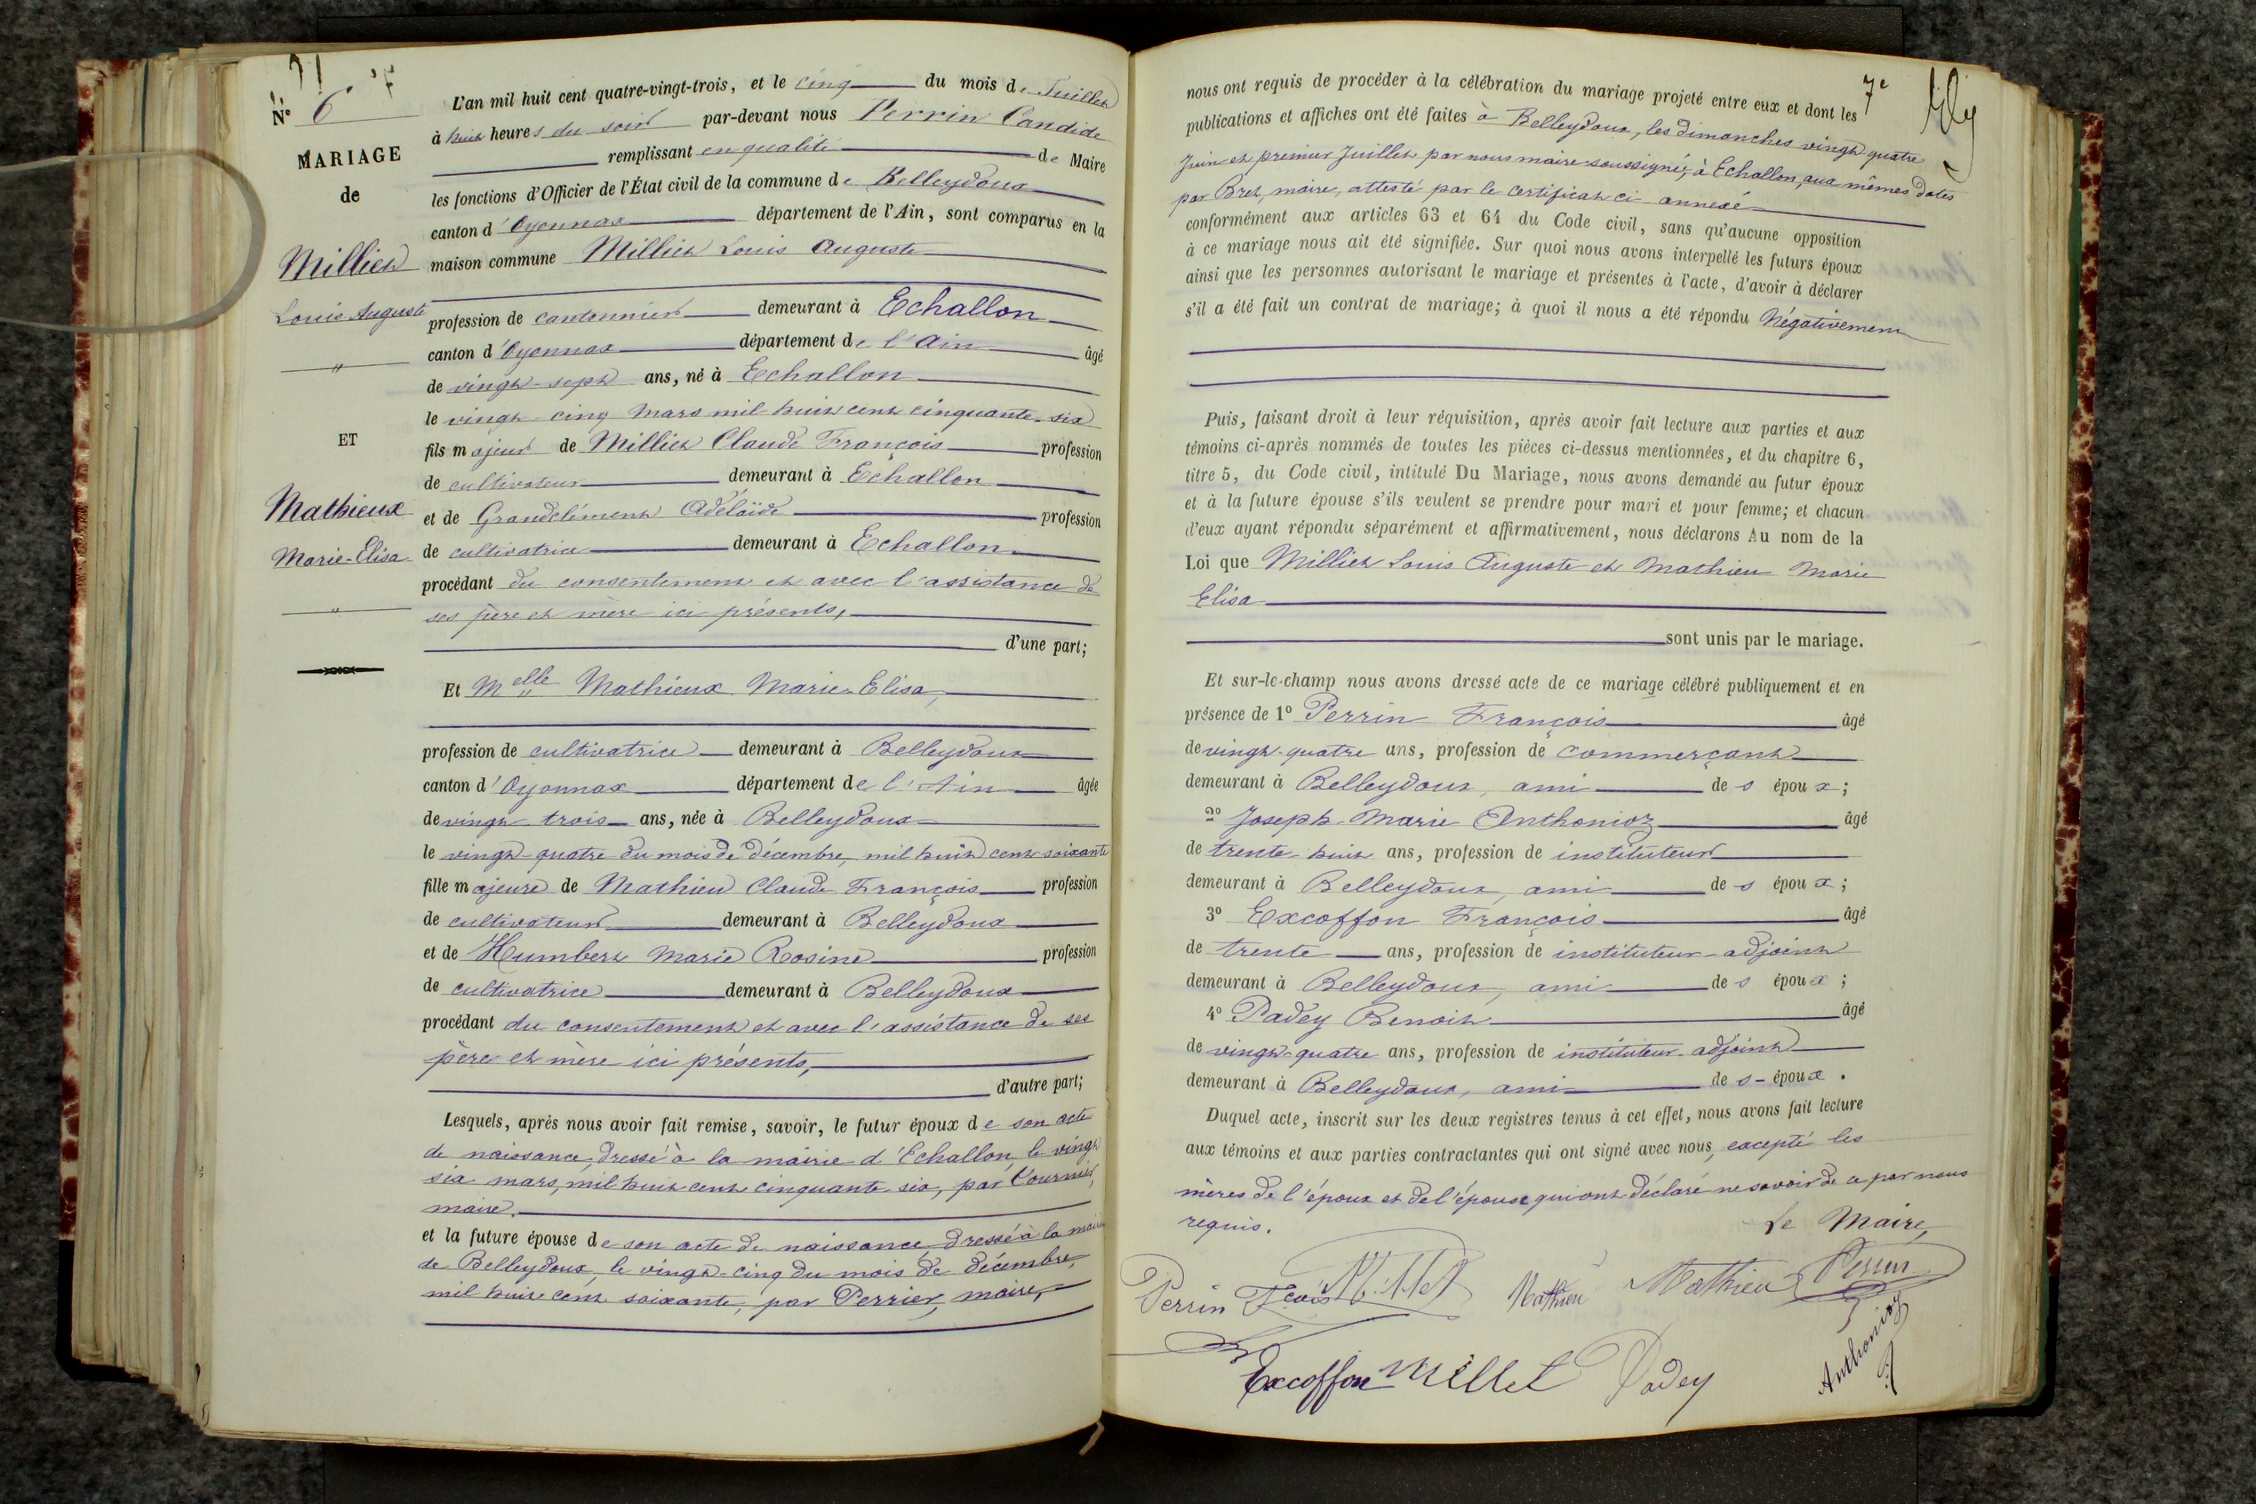 N° 6
MARIAGE
de
Milliet
Louis Auguste
"
ET
Mathieux
Marie-Elisa
"
L'an mil huit cent quatre-vingt-trois, et le cinq du mois de Juillet
à huit heures du soir par-devant nous Perrin Candide
remplissant en qualité de Maire
les fonctions d'Officier de l'État civil de la commune de Belleydoux
canton d'Oyonnax département de l'Ain, sont comparus en la
maison commune Milliet Louis Auguste
profession de cantonnier demeurant à Echallon
canton d'Oyonnax département de l'Ain âgé
de vingt-sept ans, né à Echallon
le vingt-cinq Mars mil huit cent cinquante-six
fils majeur de Milliet Claude François profession
de cultivateur demeurant à Echallon
et de Grandclément Adélaïde profession
de cultivatrice demeurant à Echallon
procédant du consentement et avec l'assistance de
ses père et mère ici présents,
d'une part;
Et Melle Mathieux Marie-Elisa,
profession de cultivatrice demeurant à Belleydoux
canton d'Oyonnax département de l'Ain âgée
de vingt-trois ans, née à Belleydoux
le vingt-quatre du mois de décembre, mil huit cent soixante
fille majeure de Mathieu Claude François profession
de cultivateur demeurant à Belleydoux
et de Humbert Marie Rosine profession
de cultivatrice demeurant à Belleydoux
procédant du consentement et avec l'assistance de ses
père et mère ici présents,
d'autre part;
Lesquels, après nous avoir fait remise, savoir, le futur époux de son acte
de naissance, dressé à la mairie d'Echallon, le vingt
six mars, mil huit cent cinquante six, par Tournier,
maire.
et la future épouse de son acte de naissance, dressé à la mairie
de Belleydoux, le vingt-cinq du mois de décembre,
mil huit cent soixante, par Perrier, maire,
7e
nous ont requis de procéder à la célébration du mariage projeté entre eux et dont les
publications et affiches ont été faites à Belleydoux, les dimanches vingt-quatre
Juin et premier Juillet par nous maire soussigné, à Echallon, aux mêmes dates
par Bret, maire, attesté par le certificat ci-annexé
conformément aux articles 63 et 64 du Code civil, sans qu'aucune opposition
à ce mariage nous ait été signifiée. Sur quoi nous avons interpellé les futurs époux
ainsi que les personnes autorisant le mariage et présentes à l'acte, d'avoir à déclarer
s'il a été fait un contrat de mariage; à quoi il nous a été répondu Négativement
Puis, faisant droit à leur réquisition, après avoir fait lecture aux parties et aux
témoins ci-après nommés de toutes les pièces ci-dessus mentionnées, et du chapitre 6,
titre 5, du Code civil, intitulé Du Mariage, nous avons demandé au futur époux
et à la future épouse s'ils veulent se prendre pour mari et pour femme; et chacun
d'eux ayant répondu séparément et affirmativement, nous déclarons Au nom de la
Loi que Milliet Louis Auguste et Mathieu Marie
Elisa
sont unis par le mariage.
Et sur-le-champ nous avons dressé acte de ce mariage célébré publiquement et en
présence de 1° Perrin François âgé
de vingt-quatre ans, profession de commerçant
demeurant à Belleydoux, ami de s époux;
2° Joseph-Marie Anthonioz âgé
de trente-huit ans, profession de instituteur
demeurant à Belleydoux, ami de s époux;
3° Excoffon François âgé
de trente ans, profession de instituteur-adjoint
demeurant à Belleydoux, ami de s époux;
4° Padey Benoit âgé
de vingt-quatre ans, profession de instituteur-adjoint
demeurant à Belleydoux, ami de s-époux.
Duquel acte, inscrit sur les deux registres tenus à cet effet, nous avons fait lecture
aux témoins et aux parties contractantes qui ont signé avec nous, excepté les
mères de l'époux et de l'épouse qui ont déclaré ne savoir de ce par nous
requis.
Le Maire,
Perrin Fcois Mathieu Mathieu Perrin
Excoffon Millet Padey Anthonioz